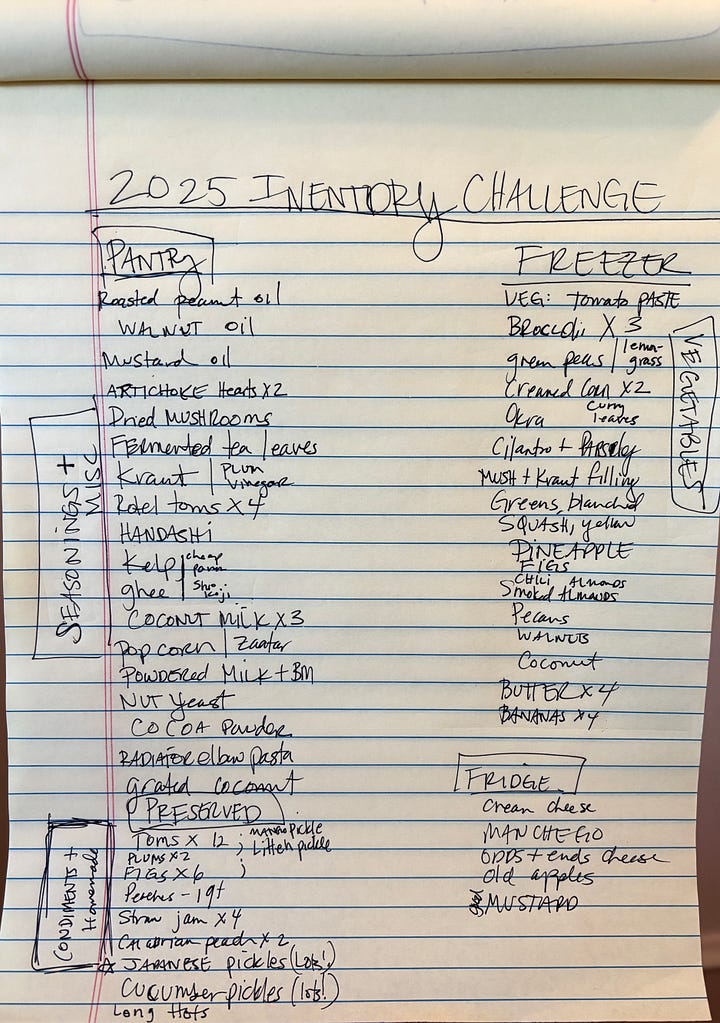 2025 INENTORY CHALLENGE
PANTRY
Roasted peanut oil
WALNUT oil
Mustard oil
ARTICHOKE Hearts X2
Dried MUSHROOMS
FERmented tea leaves
Kraut | PLUM Vinegar
Rotel toms X 4
HANDASHi
Kelp | cheap parm
ghee | Shio Koji
COCONUT MiLK X3
Pop corn | Zaatar
POWDERED MiLK + BM
NUT Yeast
COCOA Powder
RADIATOR elbow pasta
grated coconut
SEASONINGS + MISC
PRESERVED
Toms X 12 ; MANGO pickle
PLUMS X2 ; pickle
FIGS X 6 ;
Peaches - 1qt
Straw jam X 4
CALABRIAN peach X 2
☆ JAPANESE pickles (Lots!)
CUCUMBER pickles (lots!)
Long Hots
CONDIMENTS + Homemade
FREEZER
VEG: Tomato PASTE
BROCCOli X 3
green peas | lemongrass
Creamed Corn X2
Okra curry leaves
Cilantro + PARSley
MUSH + Kraut filling
Greens, blanched
SQUASH, yellow
PINEAPPLE
FIGS
CHILI Almonds
Smoked ALMONDS
Pecans
WALNUTS
Coconut
BUTTER X 4
BANANAS X4
VEGETABLES
FRIDGE
Cream cheese
MANCHEGO
ODDS + ends cheese
Old apples
MUSTARD